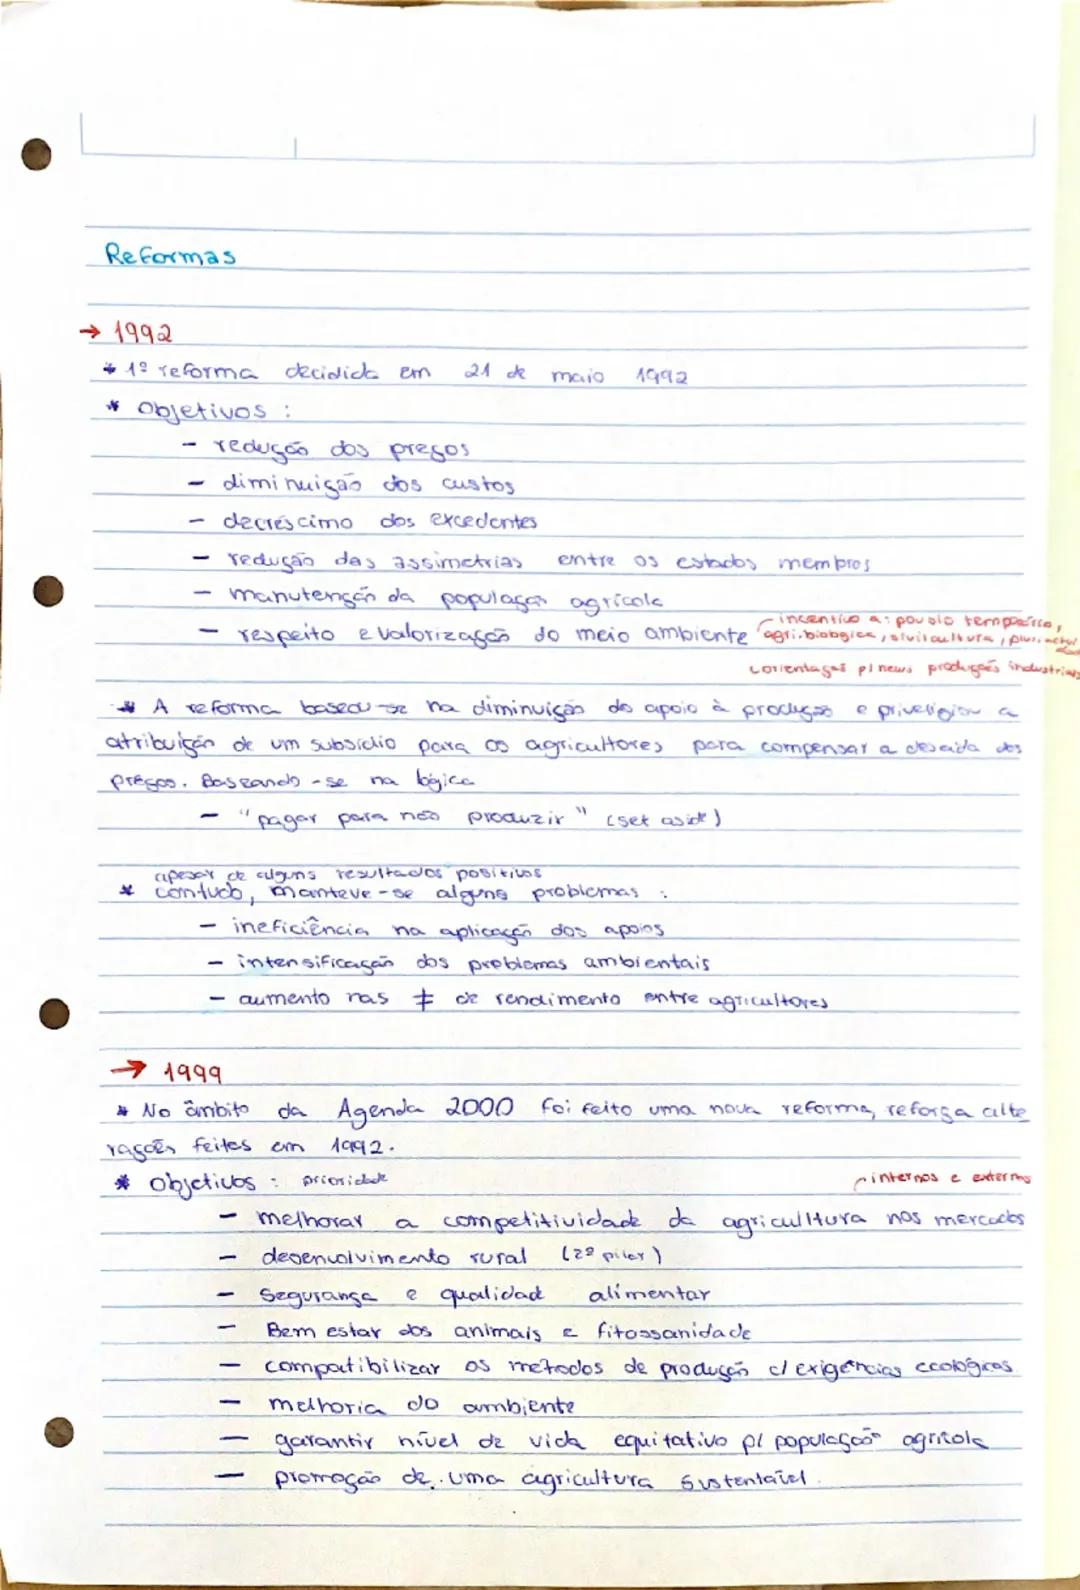 Reformas
→ 1992
* 1ª reforma decidida em 21 de maio 1992
* Objetivos :
- redução dos preços
- diminuição dos custos
- decréscimo dos excedentes
- redução das assimetrias entre os estados membros
- manutenção da população agrícola
- respeito e valorização do meio ambiente
incentivo a:
agri. biologica, silvicultura,
orientação p/ novas produções industriais
* A reforma baseou-se na diminuição do apoio à produção e priveligiou a
atribuição de um subsídio para os agricultores para compensar a descida dos
preços. Baseando-se na lógica
- "pagar para não produzir" (set aside)
apesar de alguns resultados positivos
* contudo, manteve-se alguns problemas :
- ineficiência na aplicação dos apoios
- intensificação dos problemas ambientais
- aumento nas ≠ de rendimento entre agricultores
→ 1999
* No âmbito da Agenda 2000 foi feito uma nova reforma, reforça alte
rações feitas em 1992.
* objetivos : prioridade
internos e externos
- melhorar a competitividade da agricultura nos mercados
- desenvolvimento rural (2º pilar)
- Segurança e qualidad alimentar
- Bem estar dos animais e fitossanidade
- compatibilizar os métodos de produção c/ exigências ecológicas
- melhoria do ambiente
- garantir nível de vida equitativo p/ população agrícola
- promoção de uma agricultura sustentável.